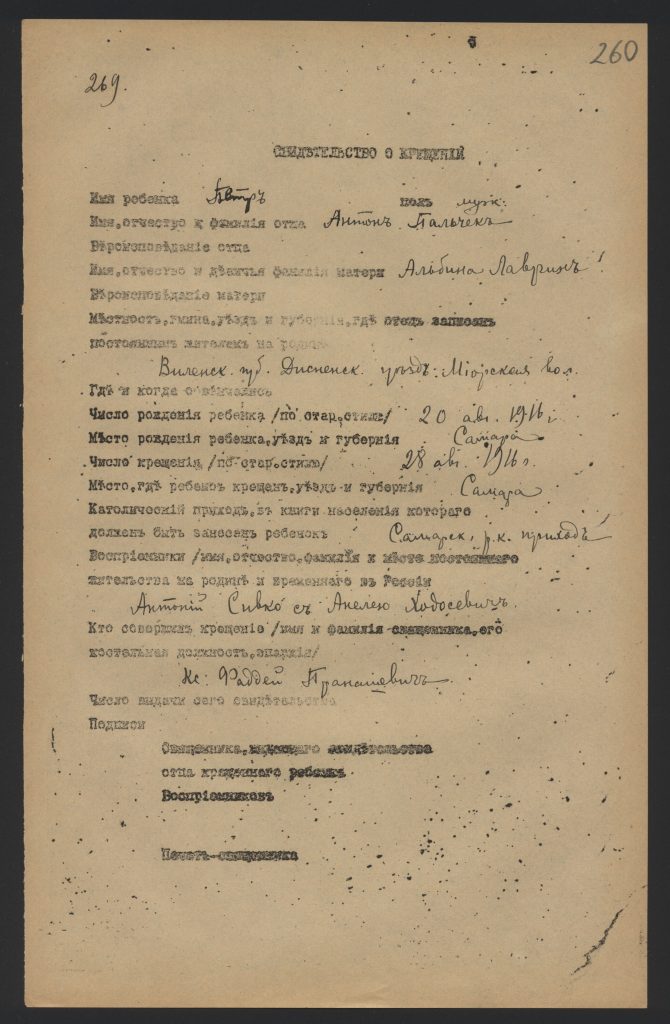 260
269.
СВИДѢТЕЛЬСТВО О КРЕЩЕНІИ
Имя ребенка Петръ полъ муж:
Имя,отчество и фамилія отца Антонъ Пальчекъ
Вѣроисповѣданіе отца
Имя,отчество и дѣвичья фамилія матери Альбина Лавринъ
Вѣроисповѣданіе матери
Мѣстность,гмина,уѣздъ и губернія,гдѣ отецъ записанъ
постояннымъ жителемъ на родинѣ
Виленск. губ. Дисненск. уѣзд: Міорская вол.
Гдѣ и когда обвѣнчались
Число рожденія ребенка /по стар.стилю/ 20 авг. 1916 г.
Мѣсто рожденія ребенка,уѣздъ и губернія Самара
Число крещенія /по стар.стилю/ 28 авг. 1916 г.
Мѣсто,гдѣ ребенокъ крещенъ,уѣздъ и губернія Самара
Католическій приходъ,въ книги населенія котораго
долженъ быть занесенъ ребенокъ Самарск. р.к. приходъ
Воспріемники /имя,отчество,фамилія и мѣсто постояннаго
жительства на родинѣ и временнаго въ Россіи
Антоній Сивко съ Анелею Ходосевичъ.
Кто совершилъ крещеніе /имя и фамилія священника,его
костельная должность,епархія/
Кс: Фаддей
Число выдачи сего свидѣтельства
Подписи
Священника,выдающаго свидѣтельства
отца крещеннаго ребенка
Воспріемниковъ
Печать священника